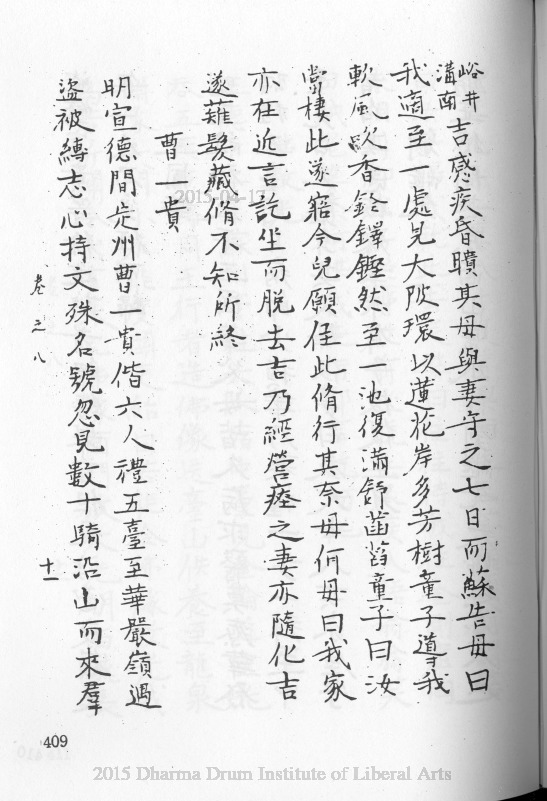 峪井
溝南
吉感疾昏瞶其母與妻守之七日而蘇告母曰
我適至一處見大陂環以蓮花岸多芳樹童子導我
軟風吹香鈴鐸鏗然至一池復滿舒菡萏童子曰汝
當棲此遂寤今兒願住此脩行其奈母何母曰我家
亦在近言訖坐而脫去吉乃經營瘞之妻亦隨化吉
遂薙髮藏脩不知所終
曹一貴
明宣德間定州曹一貴偕六人禮五臺至華嚴嶺過
盜被縛志心持文殊名號忽見數十騎沿山而來羣
卷之八 十一
409
2015-04-17
2015 Dharma Drum Institute of Liberal Arts